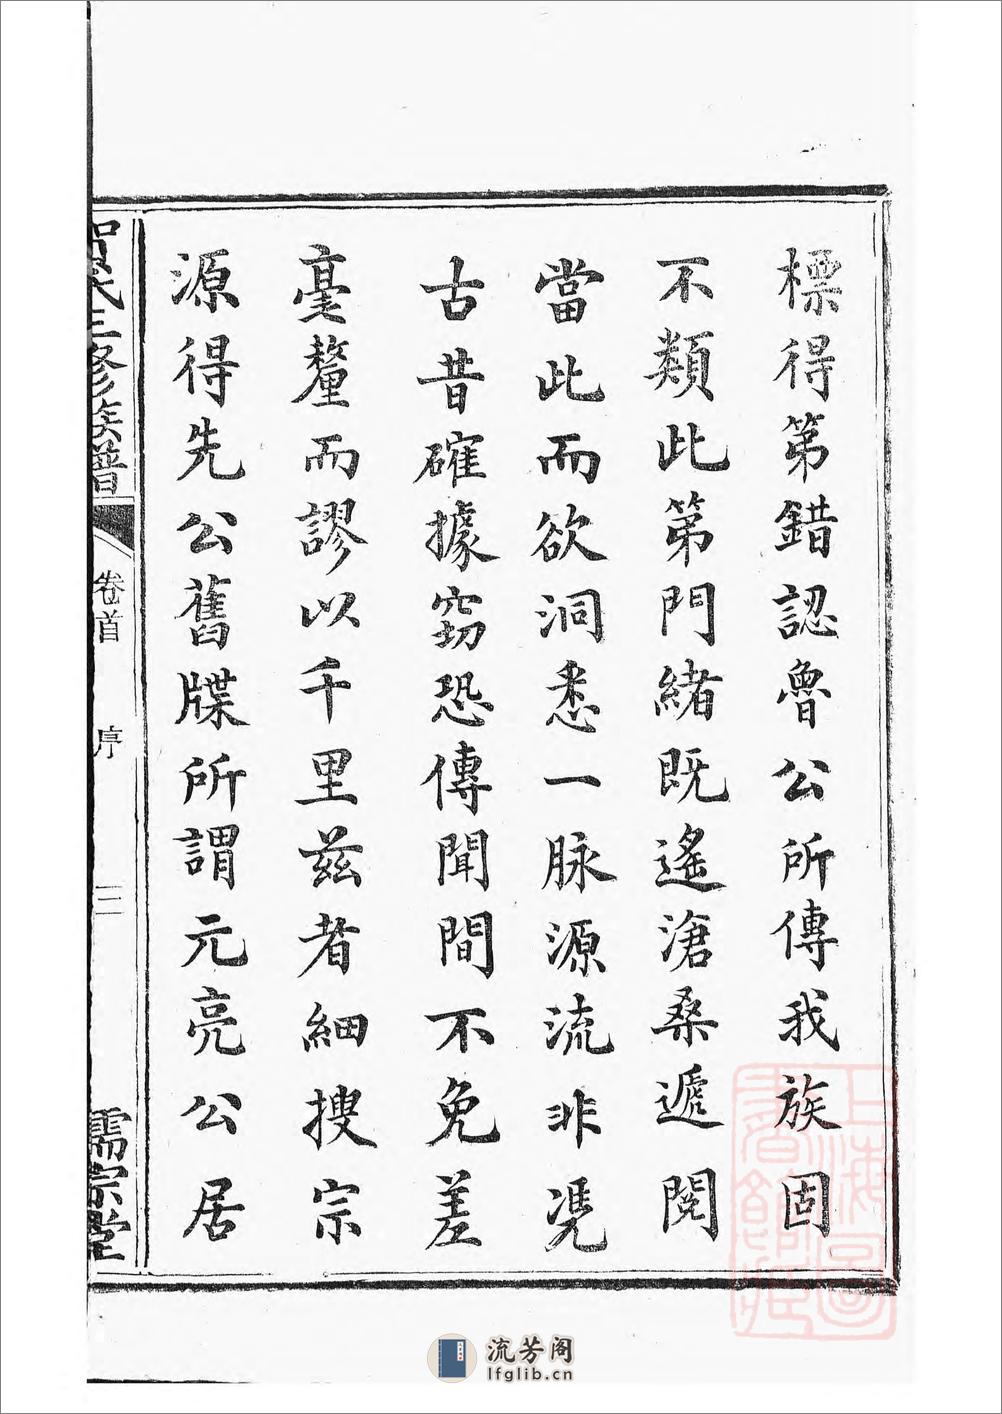 標得第錯認魯公所傳我族固
不類此第門緒既遙滄桑遞閱
當此而欲洞悉一脉源流非凴
古昔確據窃恐傳聞間不免差
毫釐而謬以千里茲者細搜宗
源得先公舊牒所謂元亮公居
賀氏三修族譜
卷首
序
三
儒宗堂
上海圖
書館藏
流芳阁
lfglib.cn